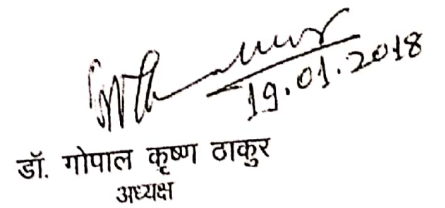 19.01.2018
डॉ. गोपाल कृष्ण ठाकुर
अध्यक्ष